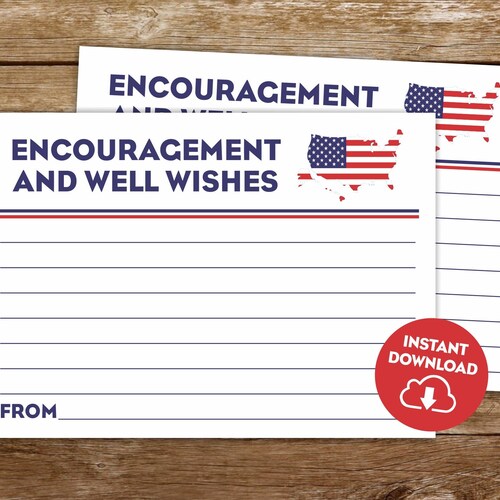 ENCOURAGEMENT
AND WELL
ENCOURAGEMENT
AND WELL WISHES
FROM
INSTANT
DOWNLOAD